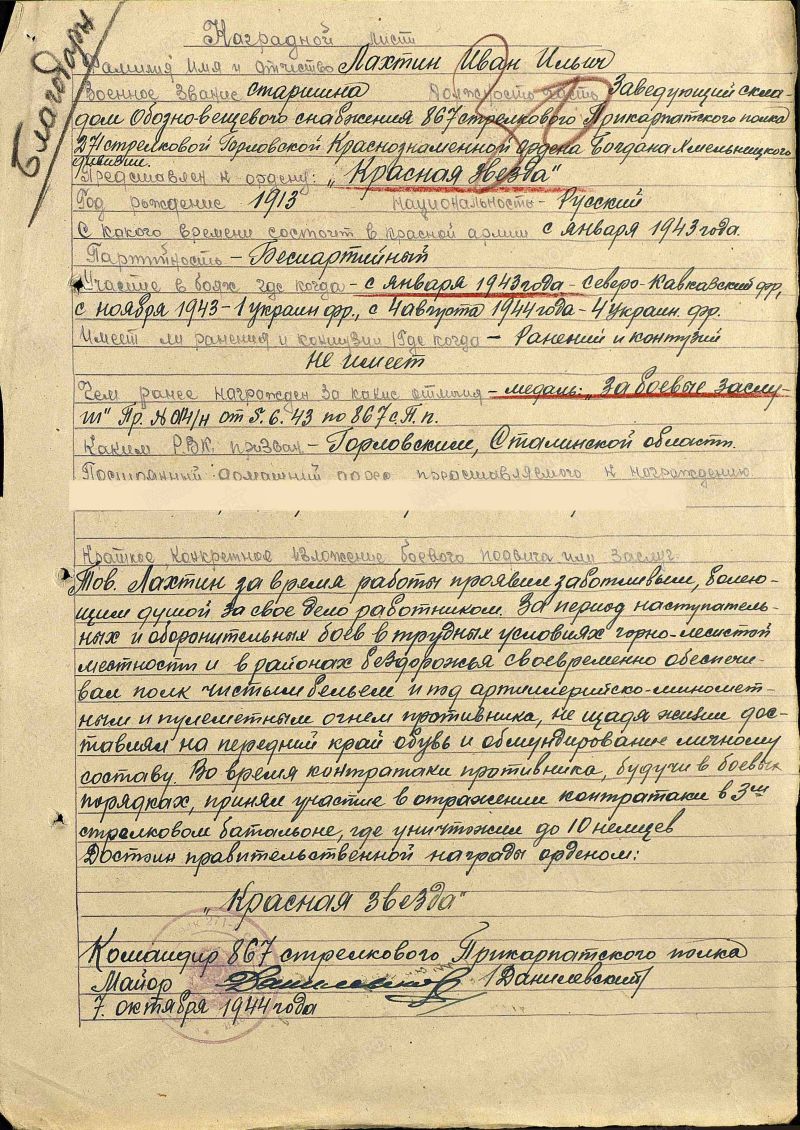 Благодарн
Наградной лист
Фамилия имя и отчество Лахтин Иван Ильич
Военное Звание старшина Должность часть Заведующий скла-
дом Обозно-вещевого снабжения 867 стрелкового Прикарпатского полка
271 стрелковой Горловской Краснознаменной Ордена Богдана Хмельницкого
дивизии.
Представлен к ордену: „Красная звезда"
Год рождение 1913 национальность - Русский
С какого времени состоит в красной армии с января 1943 года.
Партийность - Беспартийный
Участие в боях где когда - с января 1943 года - северо-Кавказский фр,
с ноября 1943 - 1 украин фр., с 4 августа 1944 года - 4 украин. фр.
Имеет ли ранения и контузии где когда - Ранений и контузий
не имеет
Чем ранее награжден за какие отличия - медаль: „За боевые заслу-
ги" Пр. № 04/н от 5.6.43 по 867 с.п.
Каким Р.В.К. призван - Горловским, Сталинской области.
Постоянный домашний адрес представляемого к награждению
Краткое конкретное изложение боевого подвига или заслуг.
Тов. Лахтин за время работы проявил заботливым, болею-
щим душой за свое дело работником. За период наступатель-
ных и оборонительных боев в трудных условиях горно-лесистой
местности и в районах бездорожья своевременно обеспечи-
вал полк чистым бельем и под артиллерийско-миномет-
ным и пулеметным огнем противника, не щадя жизни дос-
тавлял на передний край обувь и обмундирование личному
составу. Во время контратаки противника, будучи в боевых
порядках, принял участие в отражении контратаки в 3м
стрелковом батальоне, где уничтожил до 10 немцев
Достоин правительственной награды орденом:
„Красная звезда"
Командир 867 стрелкового Прикарпатского полка
Майор /Данилевский/
7. октября 1944 года